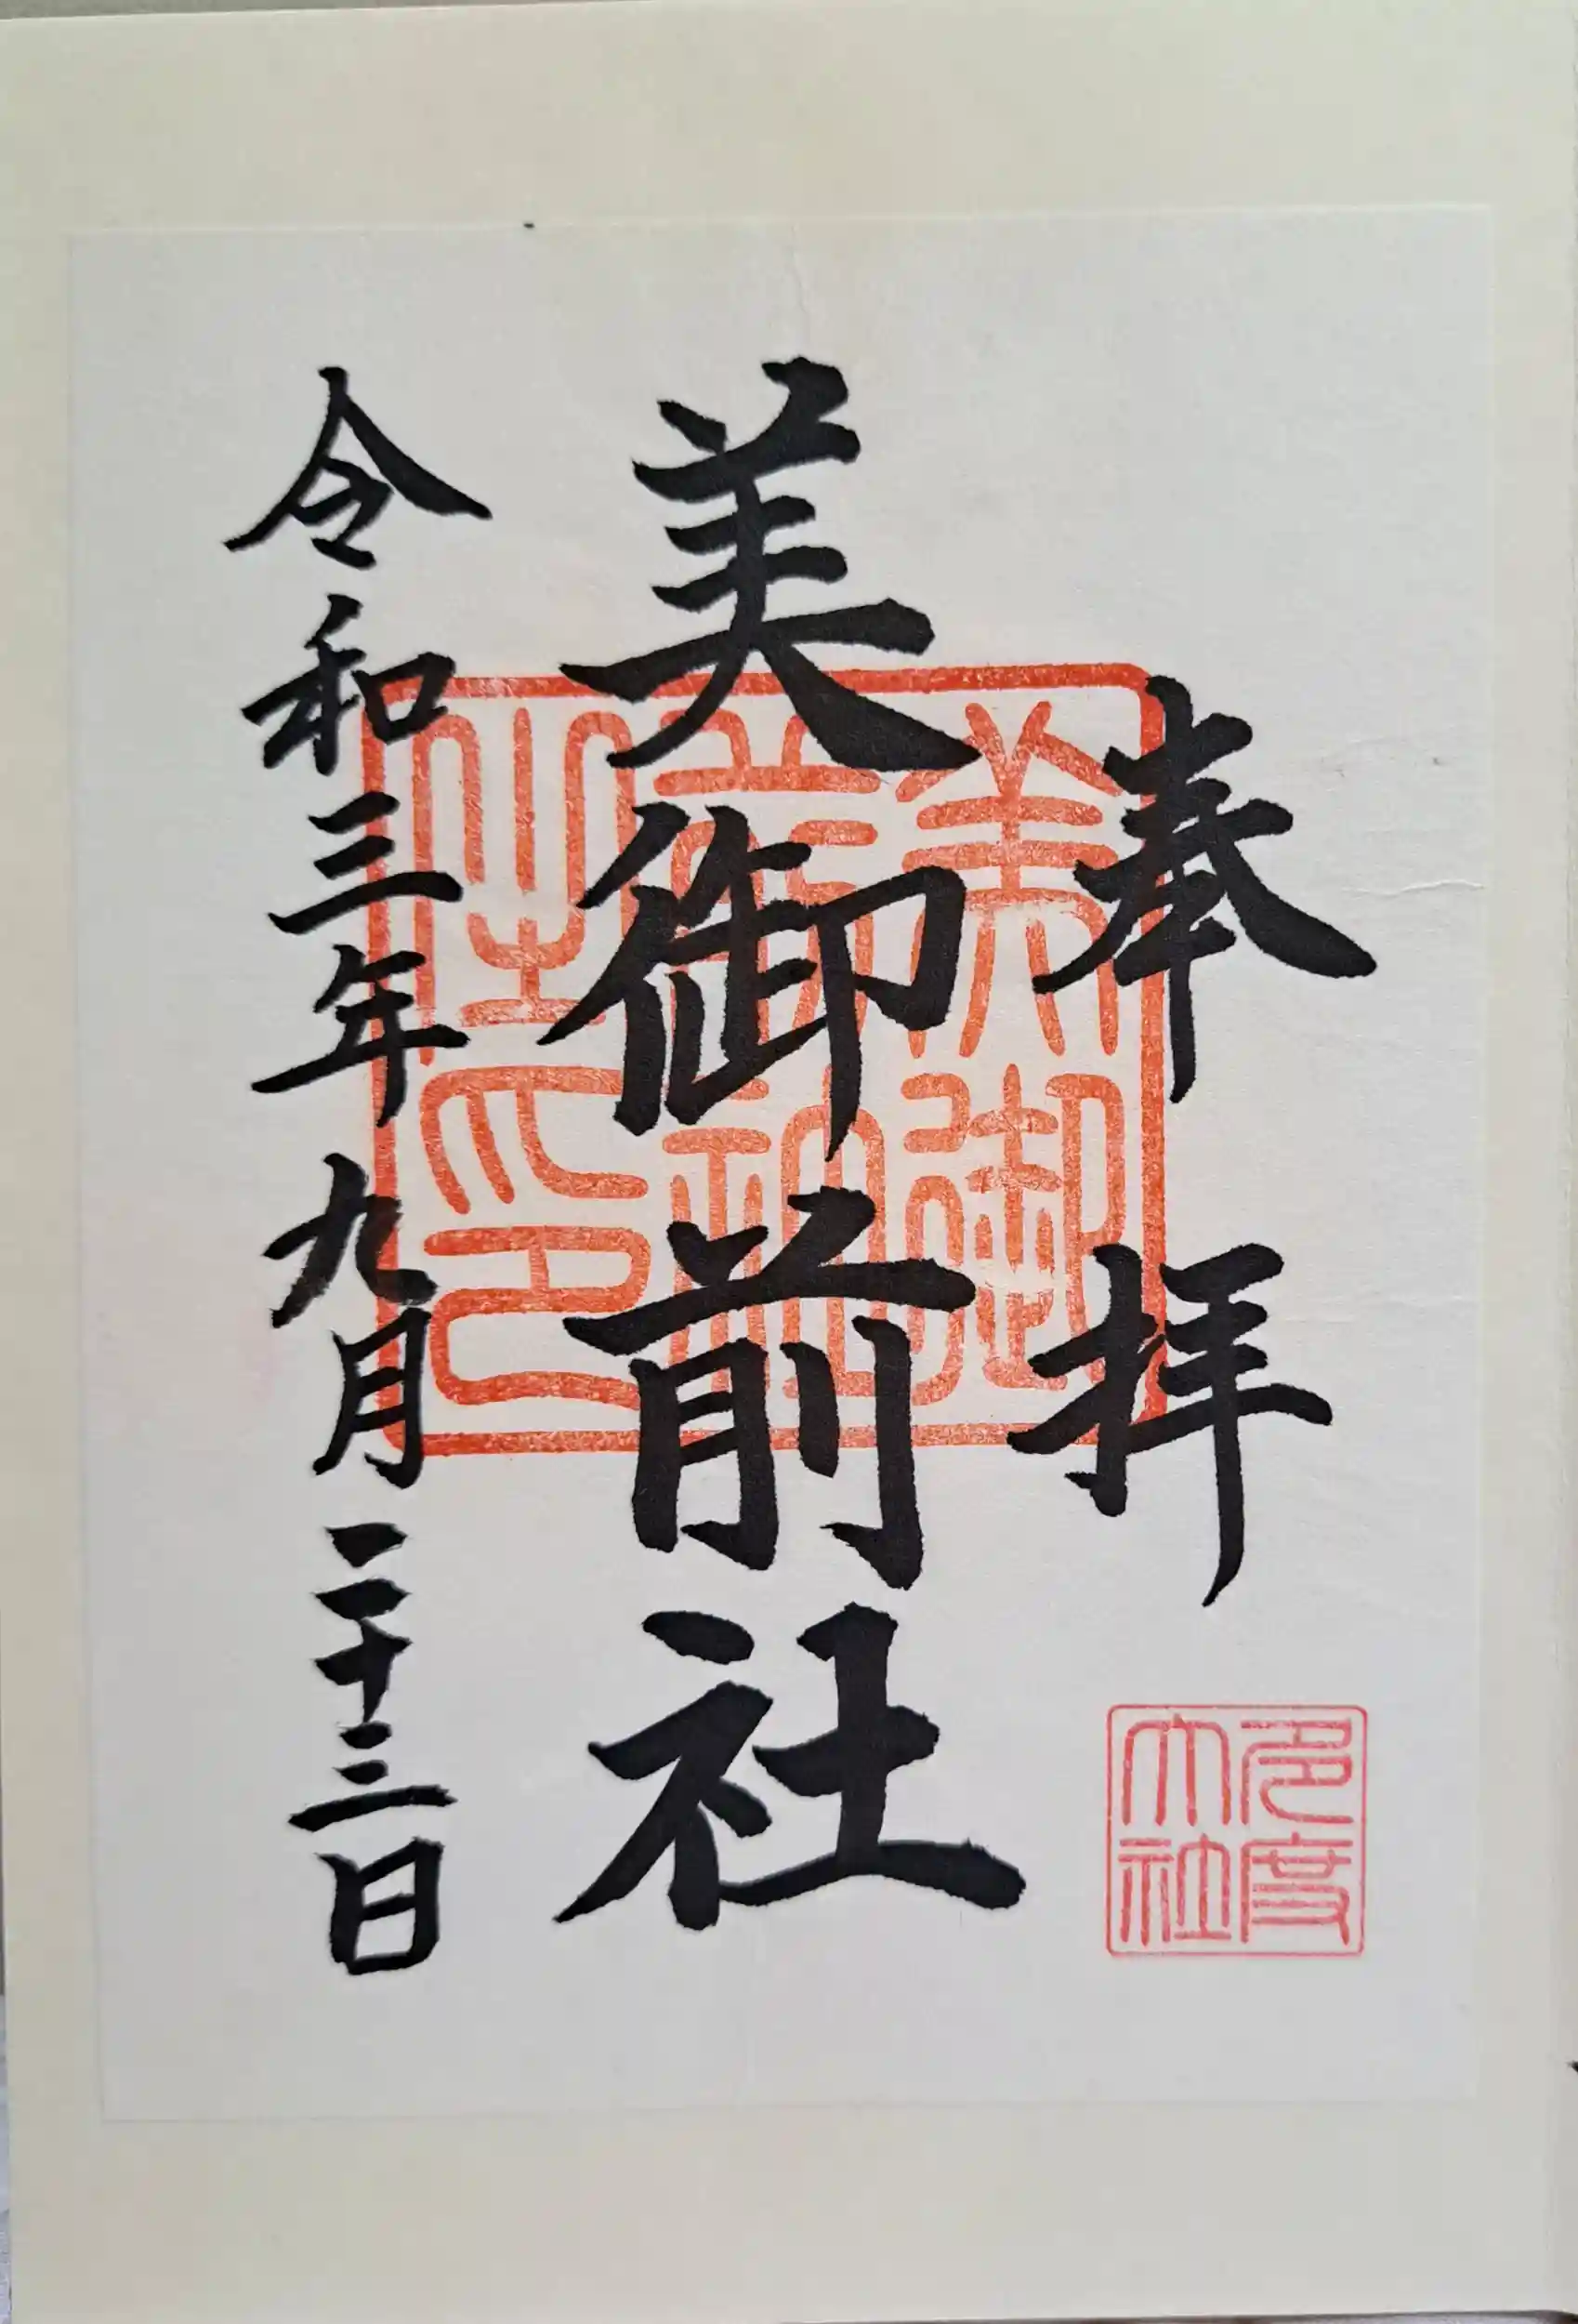 奉拝
多度
大社
美御前社
美御
前社
之印
令和三年九月二十三日